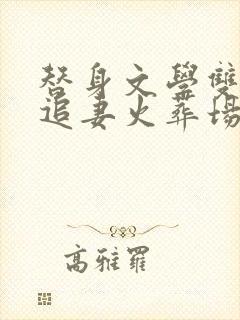 替身文學雙
追妻火葬場
高雅羅